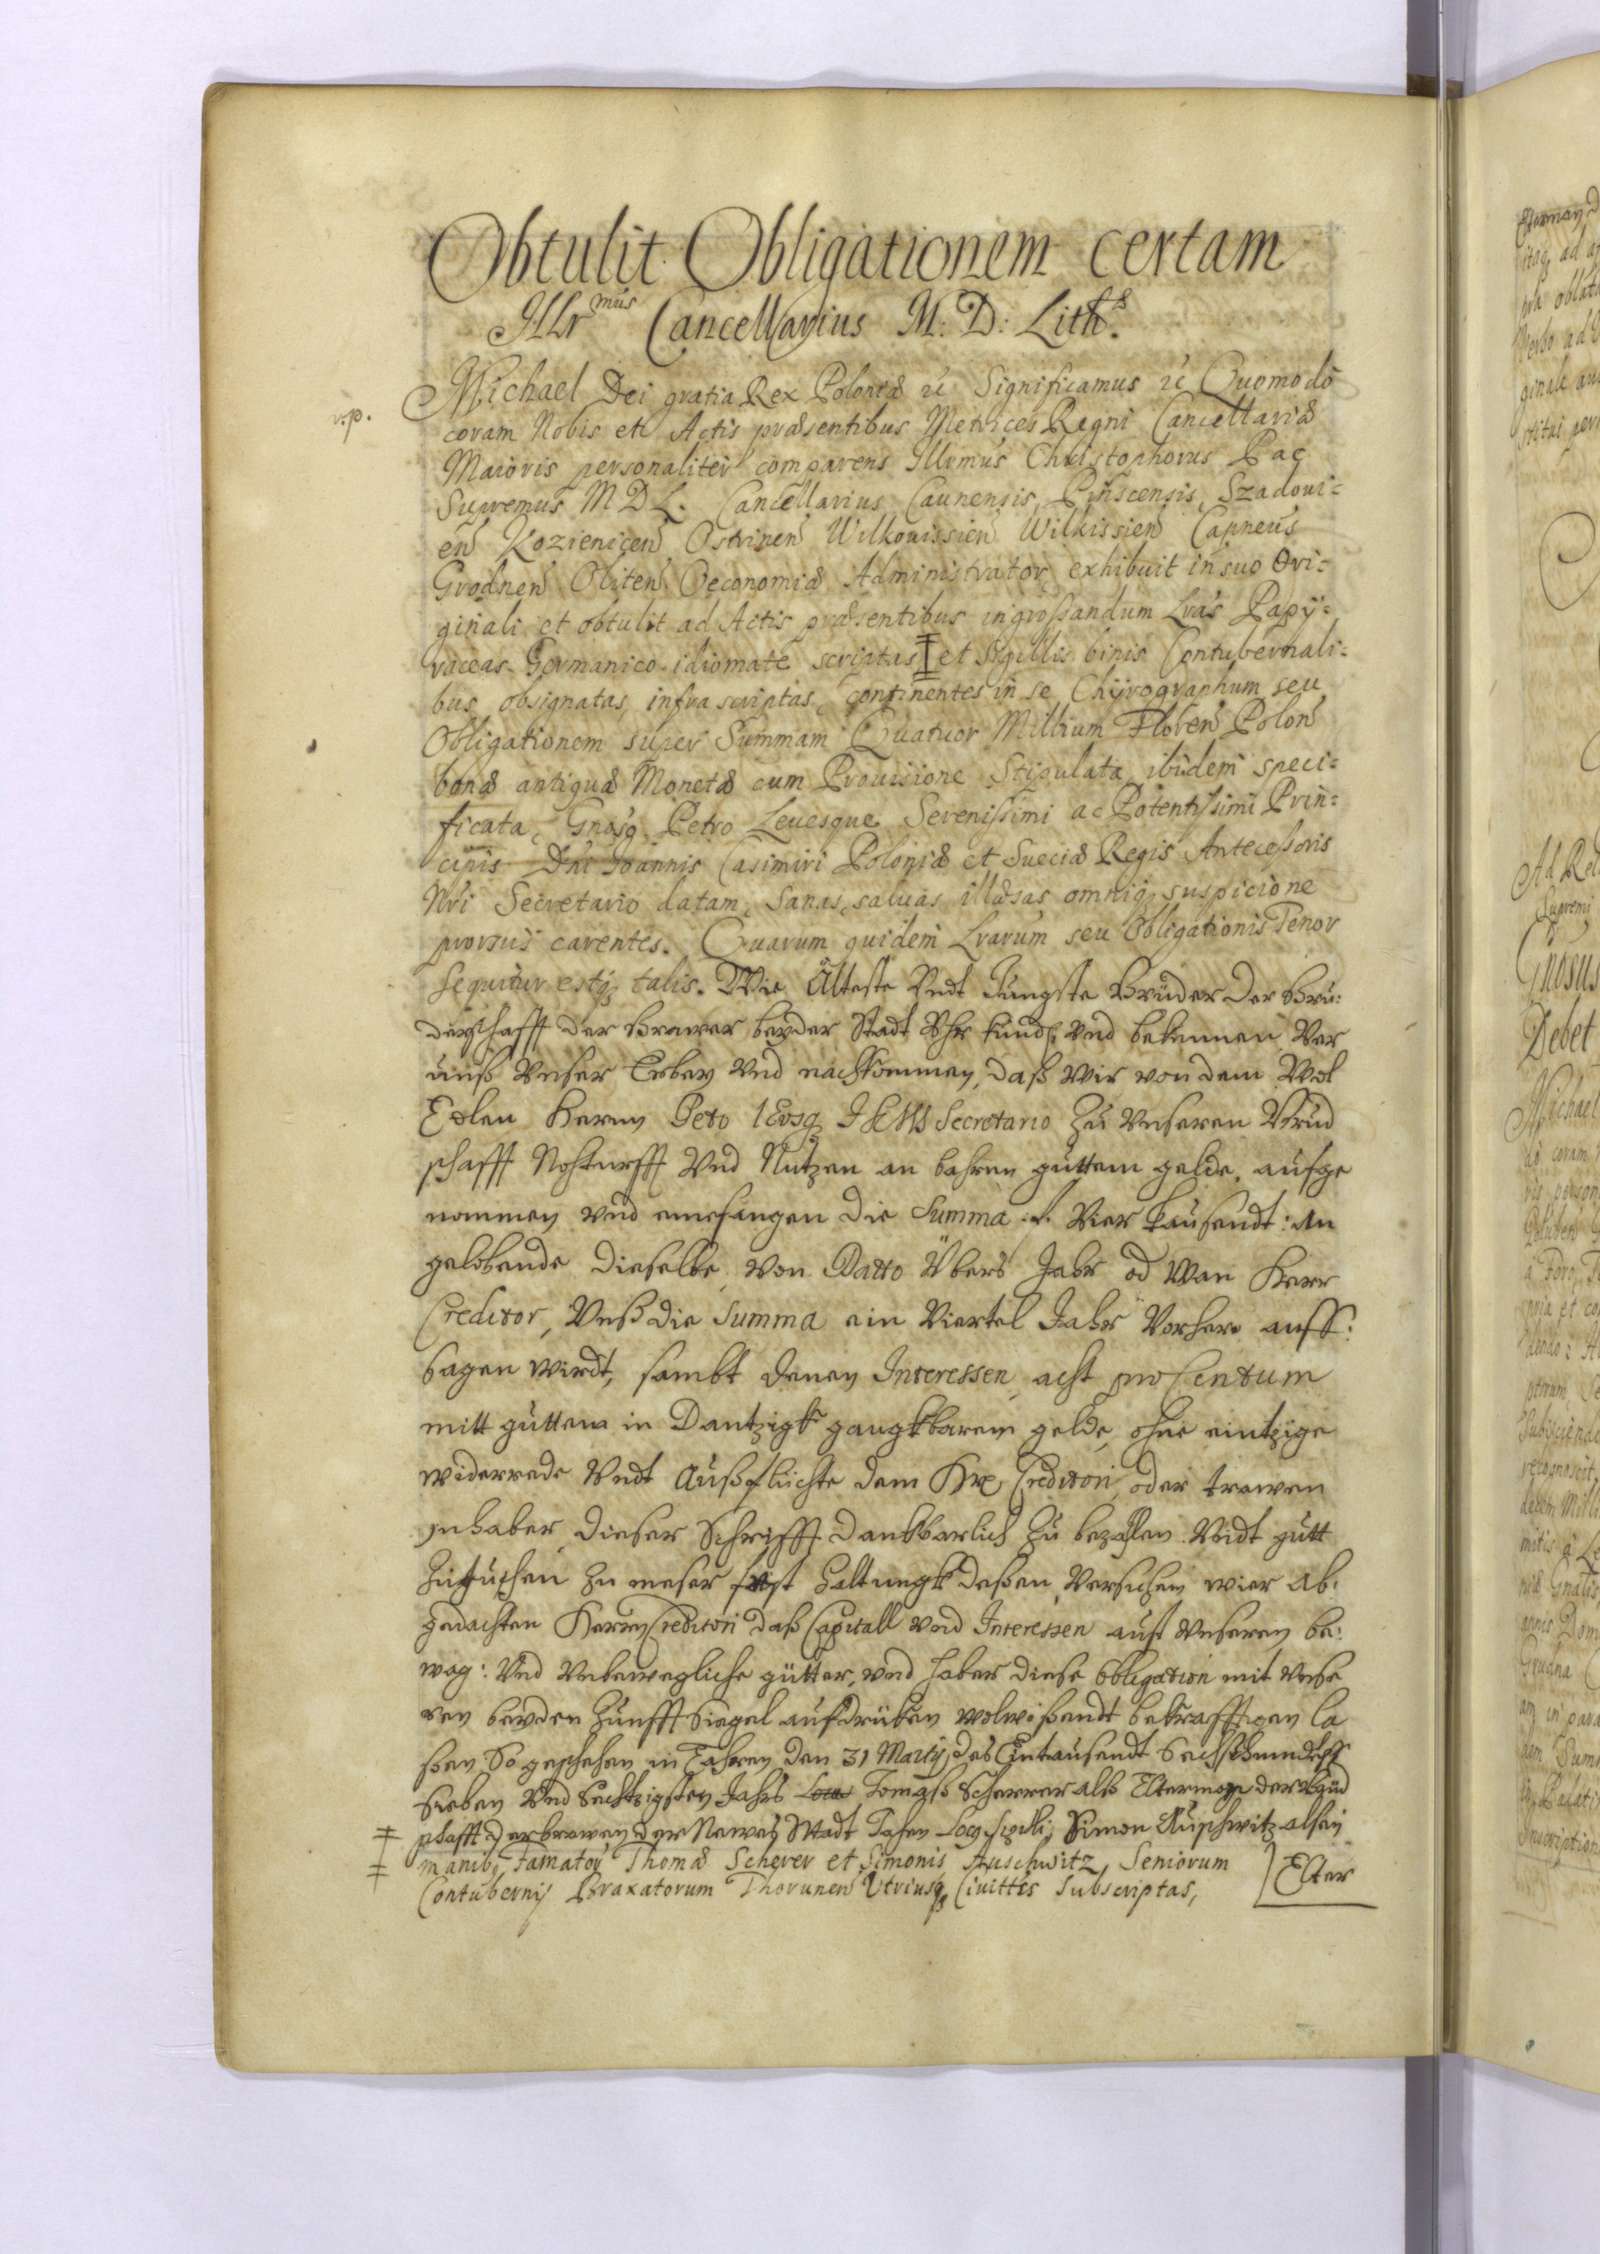 Obtulit Obligationem certam
Illrmus Cancellarius M: D: Liths.
Michael Dei gratia Rex Poloniæ etc Significamus etc Quomodo
v.p.
coram Nobis et Actis præsentibus Metrices Regni Cancellariæ
Maioris personaliter comparens Illrmus Christophorus Pac
Supremus M D L. Cancellarius Caunensis, Pinscensis, Szadoui-
en Kozienicen Ostrinen Wilkouissien Wilkissien Capneus
Grodnen Oliten Oeconomiæ Administrator exhibuit in suo Ori-
ginali et obtulit ad Actis præsentibus ingrossandum Lras Papy-
raceas Germanico idiomate scriptas ‡ et Sigillis binis Contubernali-
bus obsignatas, infrascriptas, continentes in se Chyrographum seu
Obligationem super Summam Quatuor Millium Floren Polon
bonæ antiquæ Monetæ cum Prouisione Stipulata ibidem speci-
ficata, Gnosq Petro Leuesque Serenissimi ac Potentissimi Prin-
cipis Dni Joannis Casimiri Poloniæ et Sueciæ Regis Antecessoris
Nri Secretario datam, Sanas, saluas, illæsas omniq suspicione
prorsus carentes. Quarum quidem Lrarum seu Obligationis Tenor
sequitur estq talis. Wie Älteste Vndt Jüngste Brüder der Brü-
derschafft der Brawer beyder Stadt Vhr kundl Vnd bekennen Vor
unß Vnser Erben Vnd nachkommen, daß Wir von dem Wol
Edlen Herrn Peto lEvsq JKMS Secretario Zu Vnseren Brüd
schafft Nohturfft Vnd Nützen an bahren guttem gelde, aufge
nommen vnd emefangen die Summa f. Vier tausendt: an
gelobende dieselbe, von Datto Übers Jahr od Wan Herr
Creditor, Vnß die Summa ein Viertel Jahr Vorhero auff:
sagen wirdt, sambt denen Interessen, acht pro Centum
mitt guttem in Dantzigk gangkbarem gelde, ohne eintzige
widerrede Vndt Außflüchte dem Hr Creditori, oder trawen
inhaber dieser Schrifft danckbarlich Zu bezahlen. Vndt gutt
Zu mehser fest haltungk deßen, Versichern wier ab:
gedachten Herrn Creditori daß Capitall vnd Interessen auff Vnseren be:
weg: Vnd Vnbewegliche gütter, vnd haben diese Obligation mit Vnse
ren beyden Zunfft Siegel aufdrücken wolwißendt bekrafftigen la
ßen. So geschehen in Tohren den 31 Martij, des Eintausendt Sechßhundert
Sieben Vnd Sechtzigsten Jahrs Tomaß Scherer alß Elterman der Brüd
schafft der brawen der Newes Stadt Tohren Locq Sigilli, Simon Auschwitz alß ein
‡ manibq Famator Thomæ Scherer et Simonis Auschwitz, Seniorum
‡ Contubernij Braxatorum Thorunen Vtriusq Ciuittis subscriptas,
Elter